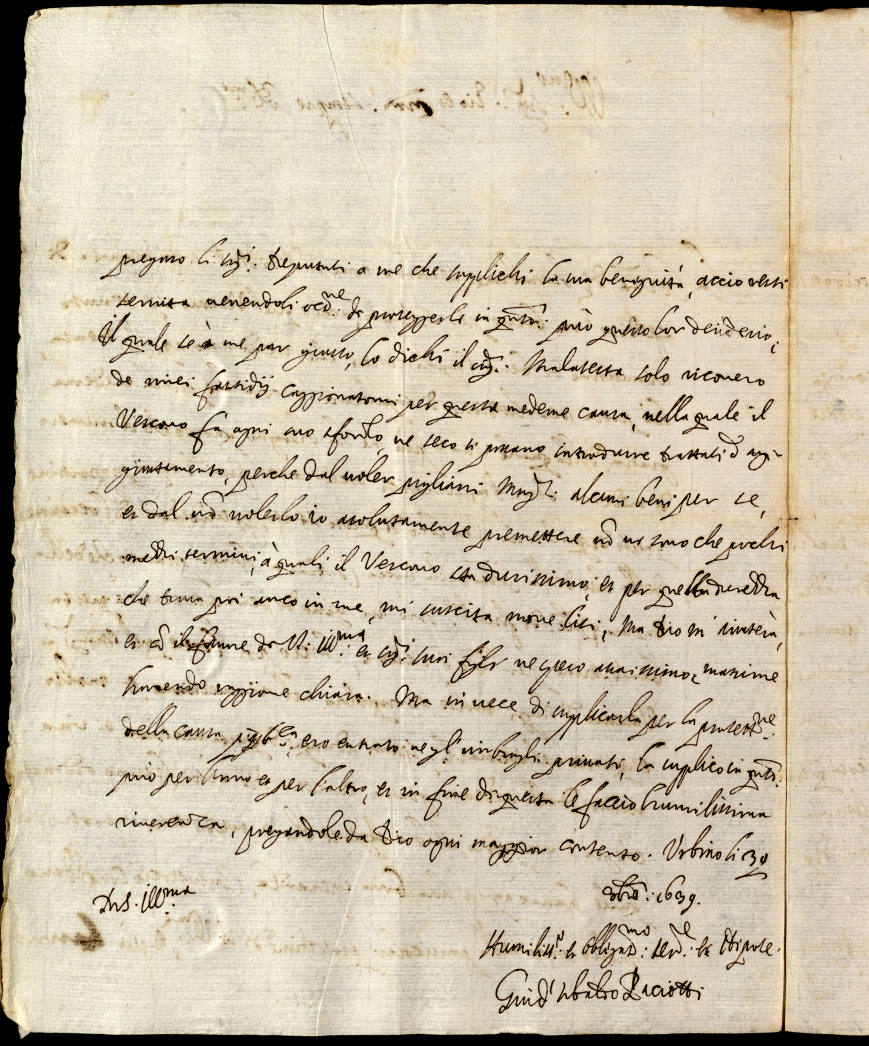 pregano li sig.ri Deputati a me che supplichi la sua benignità, acciò resti
servita venendoli occ.ne di proteggerli in q.to può questo lor desiderio,
Il quale se à me par giusto, lo dichi il sig. Malatesta solo ricovero
de miei fastidij caggionatomi per questa medema causa, nella quale il
Vescovo fà ogni suo sforzo, ne seco si possano introdurre trattati d'ag-
giustamento, perche dal voler pigliarsi alcuni beni per se,
et dal nõ volerlo io assolutamente permettere nõ vi sono che pochi
mezzi termini, à quali il Vescovo sta durissimo, et per quella durezza
che trova poi anco in me, mi suscita nove liti, Ma Dio m'aiuterà,
et cõ il favore de V. S. Ill.ma et sig.ri suoi figli ne spero assaissimo, massime
havendo raggione chiara. Ma in vece di supplicarla per la protett.ne
della causa publ.ca, ero entrato negl'imbrogli privati, la supplico in q.to
può per l'uno et per l'altro, et in fine di questa le faccio humilissima
riverenza, pregandole da Dio ogni maggior contento. Urbino li 30
xbre: 1639.
D V.S. Ill.ma
Humiliss.o et obligat.mo ser.re et Nipote.
Guid'Ubaldo Paciotti